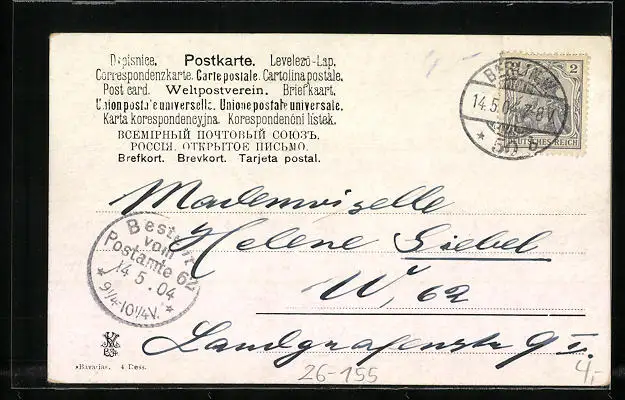 Dopisnice. Postkarte. Levelező-Lap.
Correspondenzkarte. Carte postale. Cartolina postale.
Post card. Weltpostverein. Briefkaart.
Union postale universelle. Unione postale universale.
Karta korespondencyjna. Korespondenční lístek.
ВСЕМІРНЫЙ ПОЧТОВЫЙ СОЮЗЪ.
РОССІЯ. ОТКРЫТОЕ ПИСЬМО.
Brefkort. Brevkort. Tarjeta postal.
2
DEUTSCHES REICH
BERLIN W
14.5.04. 7-8 V.
Mademoiselle
Helene Giebel
W, 62
Landgrafenstr 9 I.
Bestellt
vom
Postamte 62
14.5.04
9 1/4-10 1/4 V.
»Bavaria«. 4 Dess.
26-155
4,-